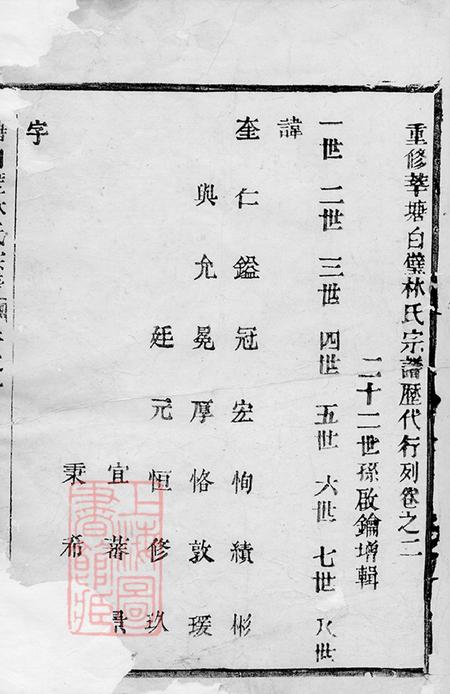 重修莘塘白璧林氏宗譜歷代行列卷之二
二十二世孫啟鑰增輯
一世 二世 三世 四世 五世 六世 七世 八世
諱
奎 仁 鎰 冠 宏 恂 績 彬
與 允 冕 厚 恪 敦 瑗
廷 元 恒 修 玖
宜 蕃
秉 希
字
林氏宗
上海圖書館藏